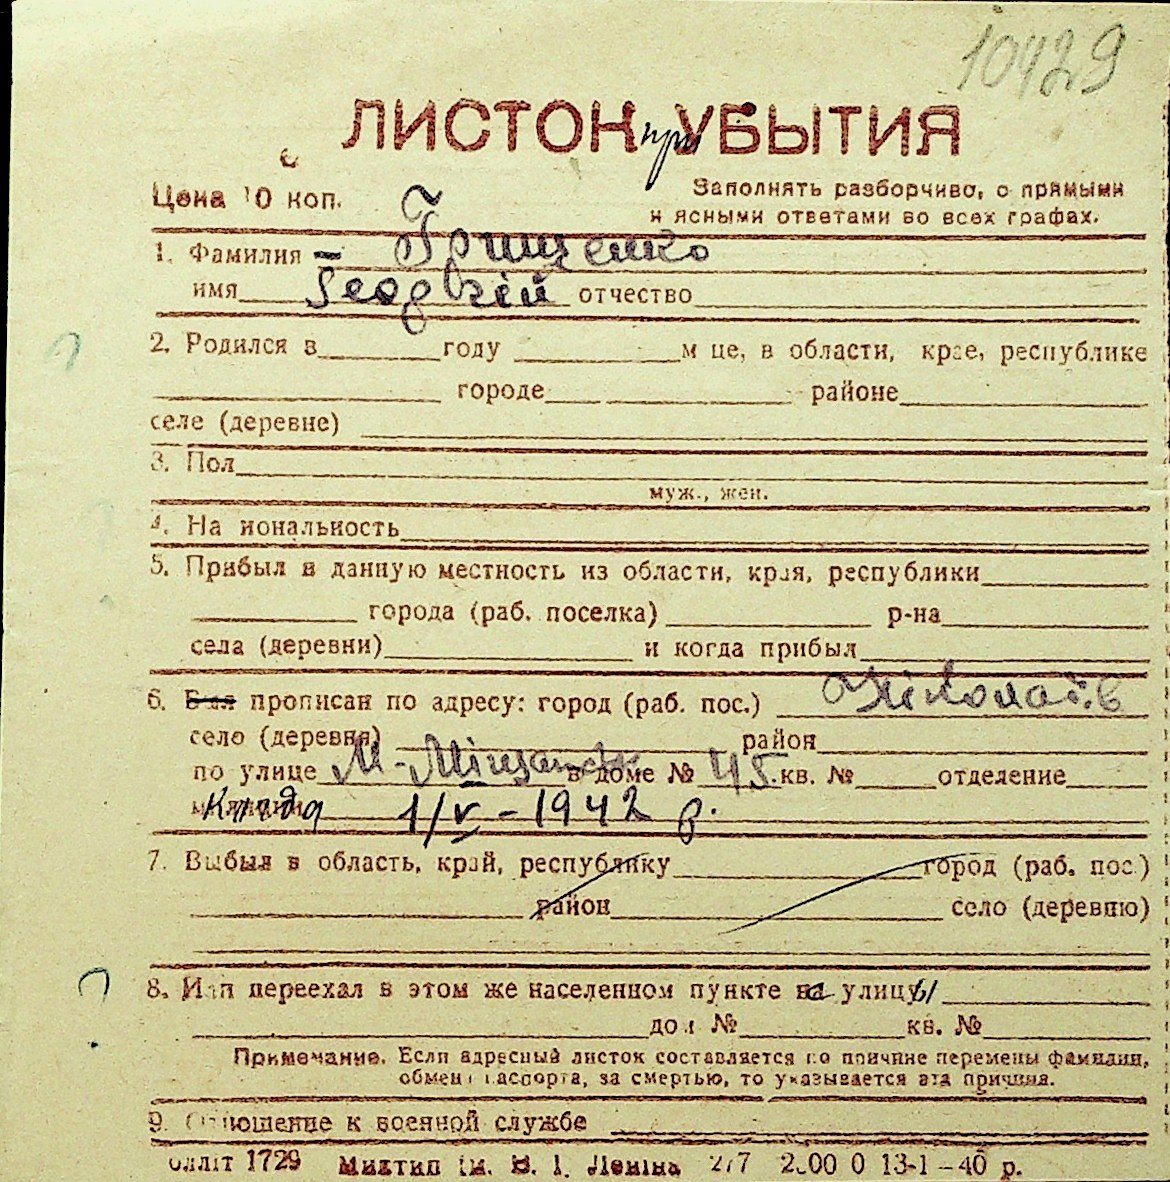 10429
ЛИСТОК при УБЫТИЯ
Цена 10 коп.
Заполнять разборчиво, с прямыми
и ясными ответами во всех графах.
1. Фамилия Грищенко
имя Георгій отчество
2. Родился в году м-це, в области, крае, республике
городе районе
селе (деревне)
3. Пол
муж., жен.
4. Национальность
5. Прибыл в данную местность из области, края, республики
города (раб. поселка) р-на
села (деревни) и когда прибыл
6. Был прописан по адресу: город (раб. пос.) Ніколаїв
село (деревня) район
по улице М-Міщанск в доме № 45 кв. № отделение
милиции Когда 1/V-1942 р.
7. Выбыл в область, край, республику город (раб. пос.)
район село (деревню)
8. Или переехал в этом же населенном пункте с улицы
дом № кв. №
Примечание. Если адресный листок составляется по причине перемены фамилии,
обмена паспорта, за смертью, то указывается эта причина.
9. Отношение к военной службе
1729 Миктип ім. В. І. Леніна 277 13-1-40 р.